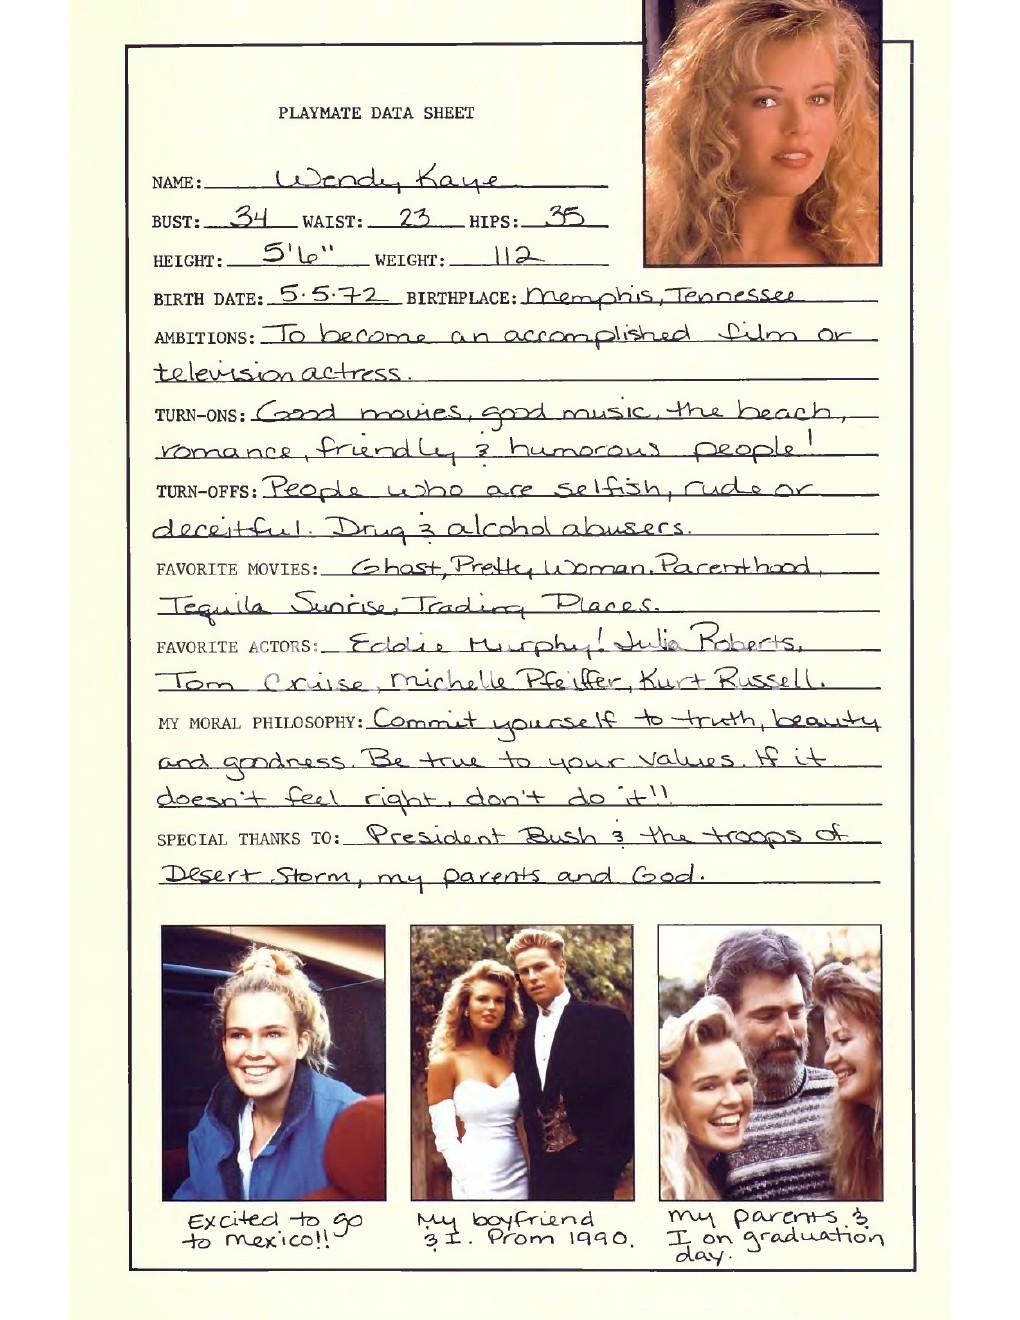 PLAYMATE DATA SHEET
NAME: Wendy Kaye
BUST: 34 WAIST: 23 HIPS: 35
HEIGHT: 5'6" WEIGHT: 112
BIRTH DATE: 5.5.72 BIRTHPLACE: Memphis, Tennessee
AMBITIONS: To become an accomplished film or
television actress.
TURN-ONS: Good movies, good music, the beach,
romance, friendly & humorous people!
TURN-OFFS: People who are selfish, rude or
deceitful. Drug & alcohol abusers.
FAVORITE MOVIES: Ghost, Pretty Woman, Parenthood,
Tequila Sunrise, Trading Places.
FAVORITE ACTORS: Eddie Murphy! Julia Roberts,
Tom Cruise, Michelle Pfeiffer, Kurt Russell.
MY MORAL PHILOSOPHY: Commit yourself to truth, beauty
and goodness. Be true to your values. If it
doesn't feel right, don't do it!!
SPECIAL THANKS TO: President Bush & the troops of
Desert Storm, my parents and God.
Excited to go
to Mexico!!
My boyfriend
& I. Prom 1990.
My parents &
I on graduation
day.